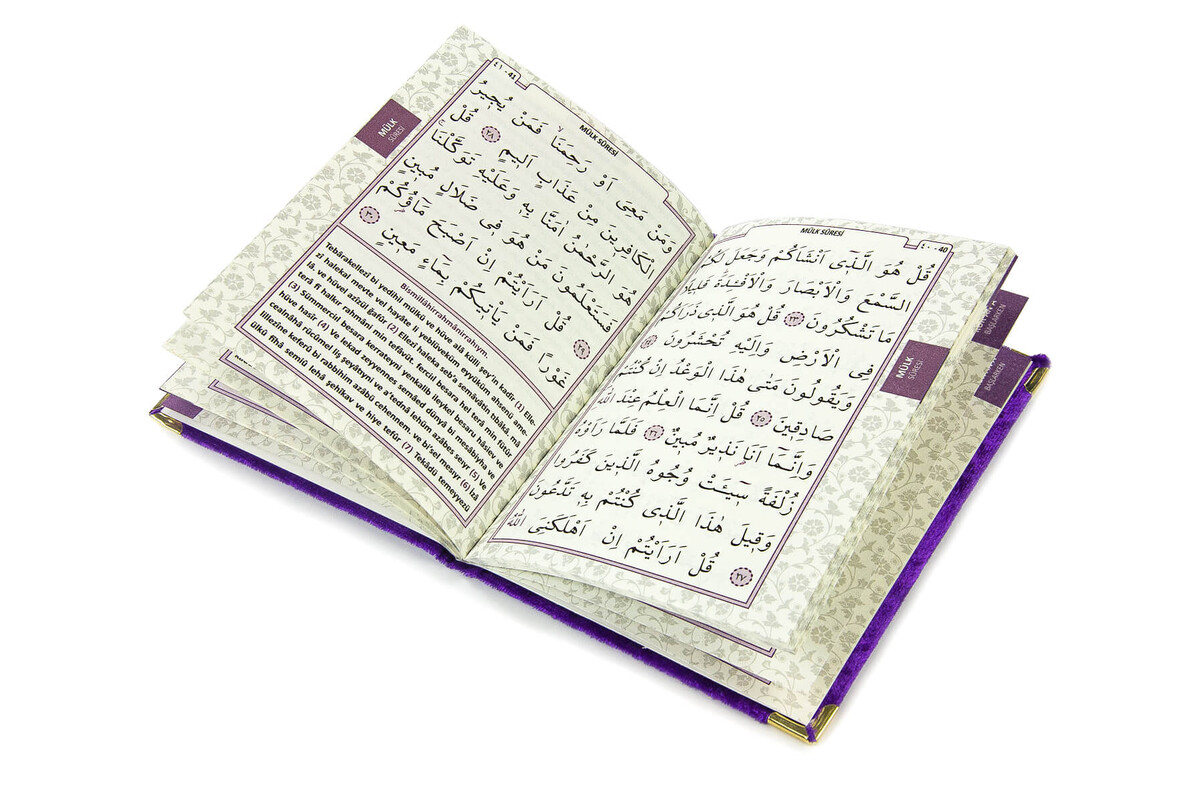 MÜLK SÛRESİ
٤٠ - 40
قُلْ هُوَ الَّذٖٓى اَنْشَاَكُمْ وَجَعَلَ لَكُمُ
السَّمْعَ وَالْاَبْصَارَ وَالْاَفْئِدَةَ قَلٖيلًا
مَا تَشْكُرُونَ ٢٣ قُلْ هُوَ الَّذٖى ذَرَاَكُمْ
فِى الْاَرْضِ وَاِلَيْهِ تُحْشَرُونَ ٢٤
وَيَقُولُونَ مَتٰى هٰذَا الْوَعْدُ اِنْ كُنْتُمْ
صَادِقٖينَ ٢٥ قُلْ اِنَّمَا الْعِلْمُ عِنْدَ اللّٰهِ
وَاِنَّمَٓا اَنَا نَذٖيرٌ مُبٖينٌ ٢٦ فَلَمَّا رَاَوْهُ
زُلْفَةً سٖٓيئَتْ وُجُوهُ الَّذٖينَ كَفَرُوا
وَقٖيلَ هٰذَا الَّذٖى كُنْتُمْ بِهٖ تَدَّعُونَ
٢٧ قُلْ اَرَاَيْتُمْ اِنْ اَهْلَكَنِىَ اللّٰهُ
MÜLK
SÛRESİ
BAŞLARKEN
BAŞLARKEN
٤١ - 41
MÜLK SÛRESİ
وَمَنْ مَعِىَ اَوْ رَحِمَنَا فَمَنْ يُجٖيرُ
الْكَافِرٖينَ مِنْ عَذَابٍ اَلٖيمٍ ٢٨ قُلْ
هُوَ الرَّحْمٰنُ اٰمَنَّا بِهٖ وَعَلَيْهِ تَوَكَّلْنَا
فَسَتَعْلَمُونَ مَنْ هُوَ فٖى ضَلَالٍ مُبٖينٍ
٢٩ قُلْ اَرَاَيْتُمْ اِنْ اَصْبَحَ مَٓاؤُكُمْ
غَوْرًا فَمَنْ يَاْتٖيكُمْ بِمَٓاءٍ مَعٖينٍ ٣٠
MÜLK
SÛRESİ
Bismillâhirrahmânirrahıym.
Tebârakellezî bi yedihil mülkü ve hüve alâ külli şey'in kadîr (1) Elle-
zî halekal mevte vel hayâte li yeblüveküm eyyüküm ahsenü ame-
lâ. ve hüvel azîzül ğafûr (2) Ellezî haleka seb'a semâvâtin tıbâkâ mâ
terâ fî halkır rahmâni min tefâvüt. ferciıl besara hel terâ min fütûr
(3) Sümmerciıl besara kerrateyni yenkalib ileykel besaru hâsiev ve
hüve hasîr (4) Ve lekad zeyyennes semâed dünyâ bi mesâbîyha ve
cealnâhâ rücûmel liş şeyâtıyni ve a'tednâ lehüm azâbes seıyr (5) Ve
lillezîne keferû bi rabbihim azâbü cehennem. ve bi'sel mesıyr (6) İzâ
ülkû fîhâ semiû lehâ şehîkav ve hiye tefûr (7) Tekâdü temeyyezü